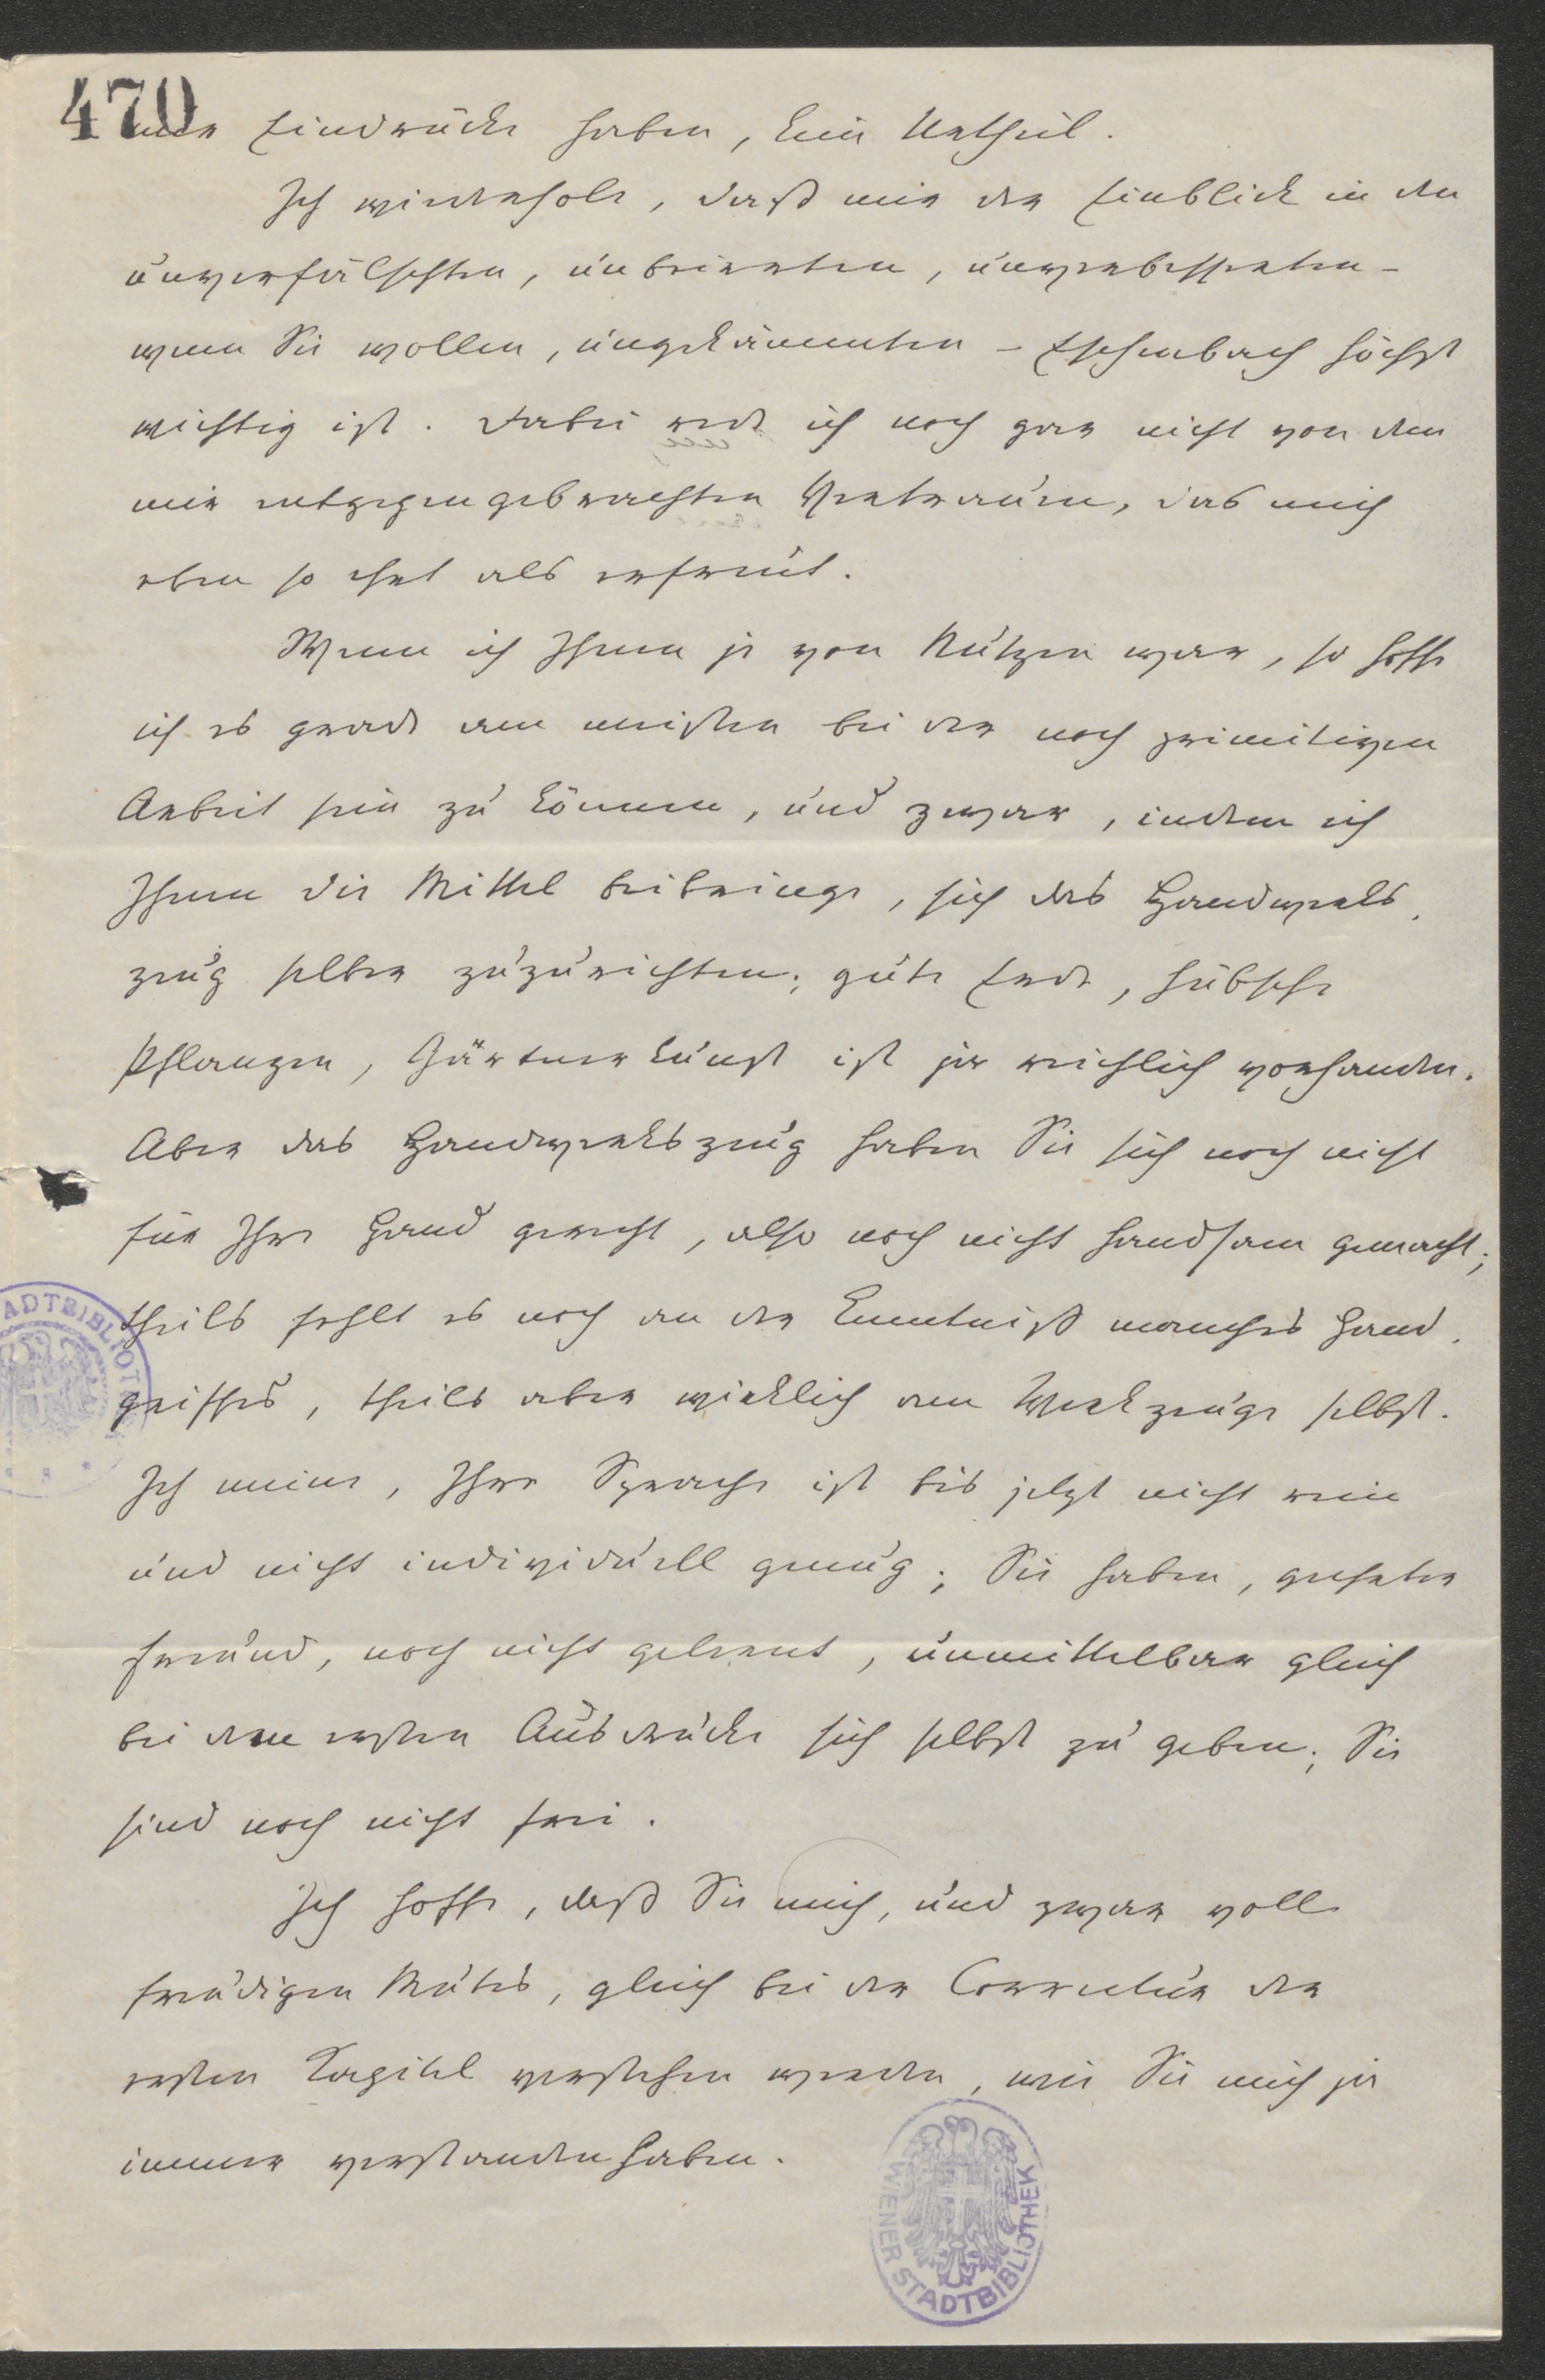 470
nur Eindrücke haben, kein Urtheil.
Ich wiederhole, daß mir der Einblick in den
unverfälschten, unbeirrten, unverbesserten -
wenn Sie wollen, ungekämmten - Eschenbach höchst
wichtig ist. Dabei rede ich noch gar nicht von dem
mir entgegengebrachten Vertrauen, das mich
eben so ehrt als erfreut.
Wenn ich Ihnen je von Nutzen war, so hoffe
ich es grade am meisten bei der noch primitiven
Arbeit sein zu können, und zwar, indem ich
Ihnen die Mittel beibringe, sich das Handwerks-
zeug selber zuzurichten; gute Erde, hübsche
Pflanzen, Gärtnerkunst ist ja reichlich vorhanden.
Aber das Handwerkszeug haben Sie sich noch nicht
für Ihre Hand gerecht, also noch nicht handsam gemacht;
theils fehlt es noch an der Kenntniß manches Hand-
griffes, theils aber wirklich am Werkzeuge selbst.
Ich meine, Ihre Sprache ist bis jetzt nicht rein
und nicht individuell genug; Sie haben, geehrter
Freund, noch nicht gelernt, unmittelbar gleich
bei dem ersten Ausdrucke sich selbst zu geben; Sie
sind noch nicht frei.
Ich hoffe, daß Sie mich, und zwar voll
freudigen Mutes, gleich bei der Correctur der
ersten Kapitel verstehen werden, wie Sie mich ja
immer verstanden haben.
STADTBIBLIOT
WIENER STADTBIBLIOTHEK